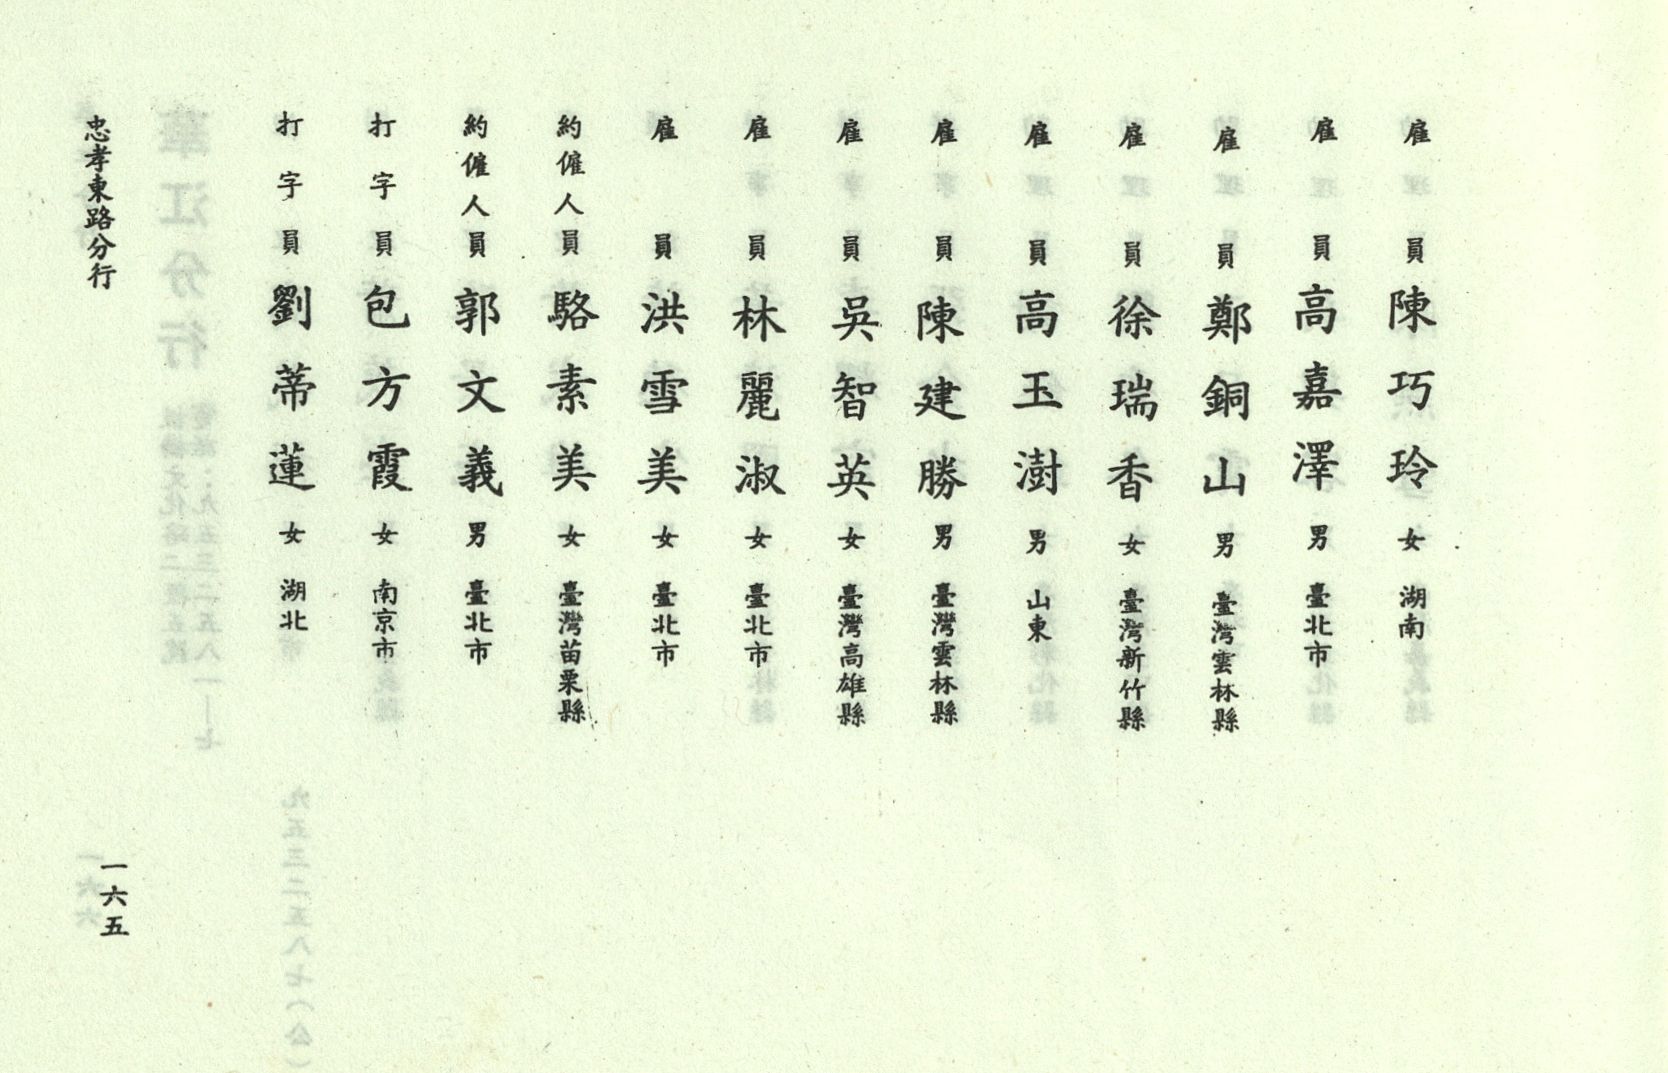 雇員陳巧玲女湖南
雇員高嘉澤男臺北市
雇員鄭銅山男臺灣雲林縣
雇員徐瑞香女臺灣新竹縣
雇員高玉澍男山東
雇員陳建勝男臺灣雲林縣
雇員吳智英女臺灣高雄縣
雇員林麗淑女臺北市
雇員洪雪美女臺北市
約僱人員駱素美女臺灣苗栗縣
約僱人員郭文義男臺北市
打字員包方霞女南京市
打字員劉蒂蓮女湖北
忠孝東路分行
一六五